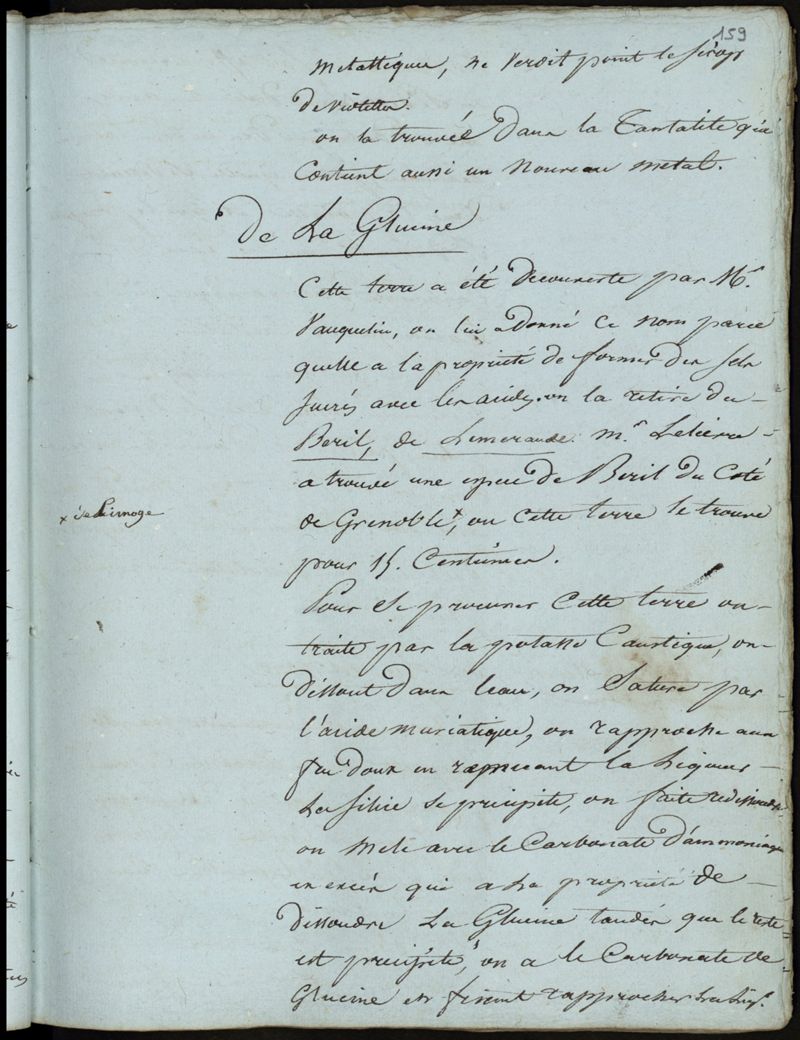 159
metallique, ne verdit point le sirop
de violette.
on la trouvée dans la Tantalite qui
Contient aussi un nouveau metal.
De La Glucine
Cette terre a été decouverte par Mr.
Vauquelin, on lui a donné ce nom parce
quelle a la propriété de former des sels
sucrés avec les acides. on la retire du
Beril, de Lemeraude. mr. Lelievre
a trouvé une espece de Beril du Coté
de Grenoble x, ou cette terre se trouve
x de Limoge
pour 15. Centiemes.
Pour se procurer cette terre on
traite par la potasse Caustique, on
dissout dans leau, on Sature par
l'acide muriatique, on rapproche au
feu doux en la Liqueur
La Silice se precipite, on faite redissoudre
on mele avec le Carbonate d'ammoniaque
en excès qui a la propriété de
dissoudre La Glucine tandis que le reste
est precipité, on a le Carbonate de
Glucine en fesant rapprocher